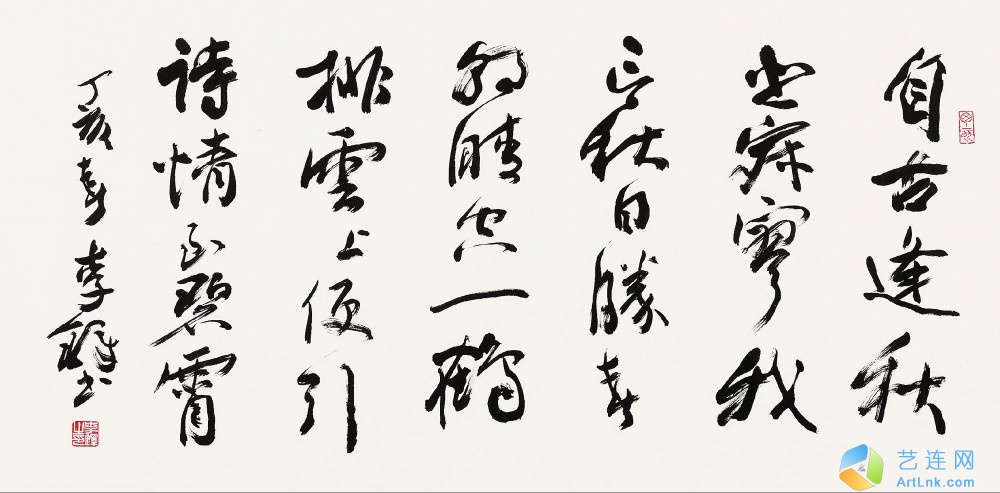 自古逢秋
悲寂寥我
言秋日勝春
朝晴空一鶴
排雲上便引
詩情到碧霄
丁亥春李鐸书
艺连网
ArtLnk.com